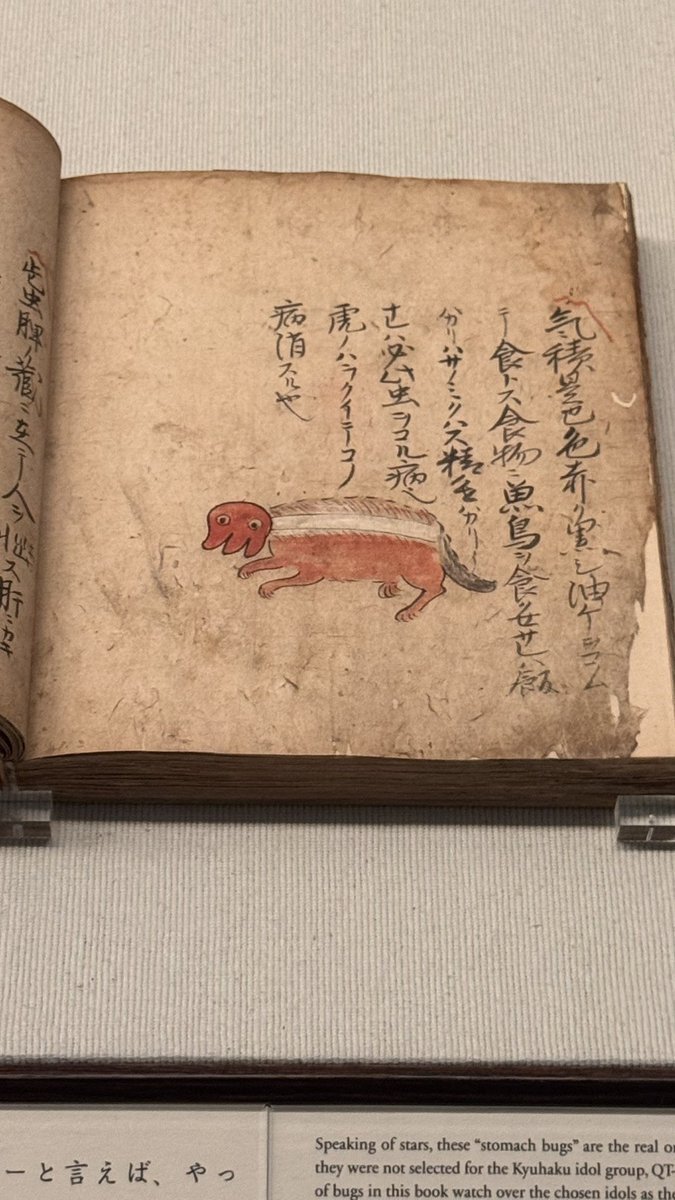 気積是也色赤ク黒シ油ケヲコノム
テ食トス食物ニ魚鳥ヲ食 飯
分リハサノミクハス精 分リ
ハ必此虫ヲコル病也
虎ノハラクイテコノ
病消スル也
此虫脾ノ蔵ニ在テ人ヲ ス肝ニカキ
ーと言えば、やっ
Speaking of stars, these “stomach bugs” are the real
they were not selected for the Kyuhaku idol group, QT-
of bugs in this book watch over the chosen idols as